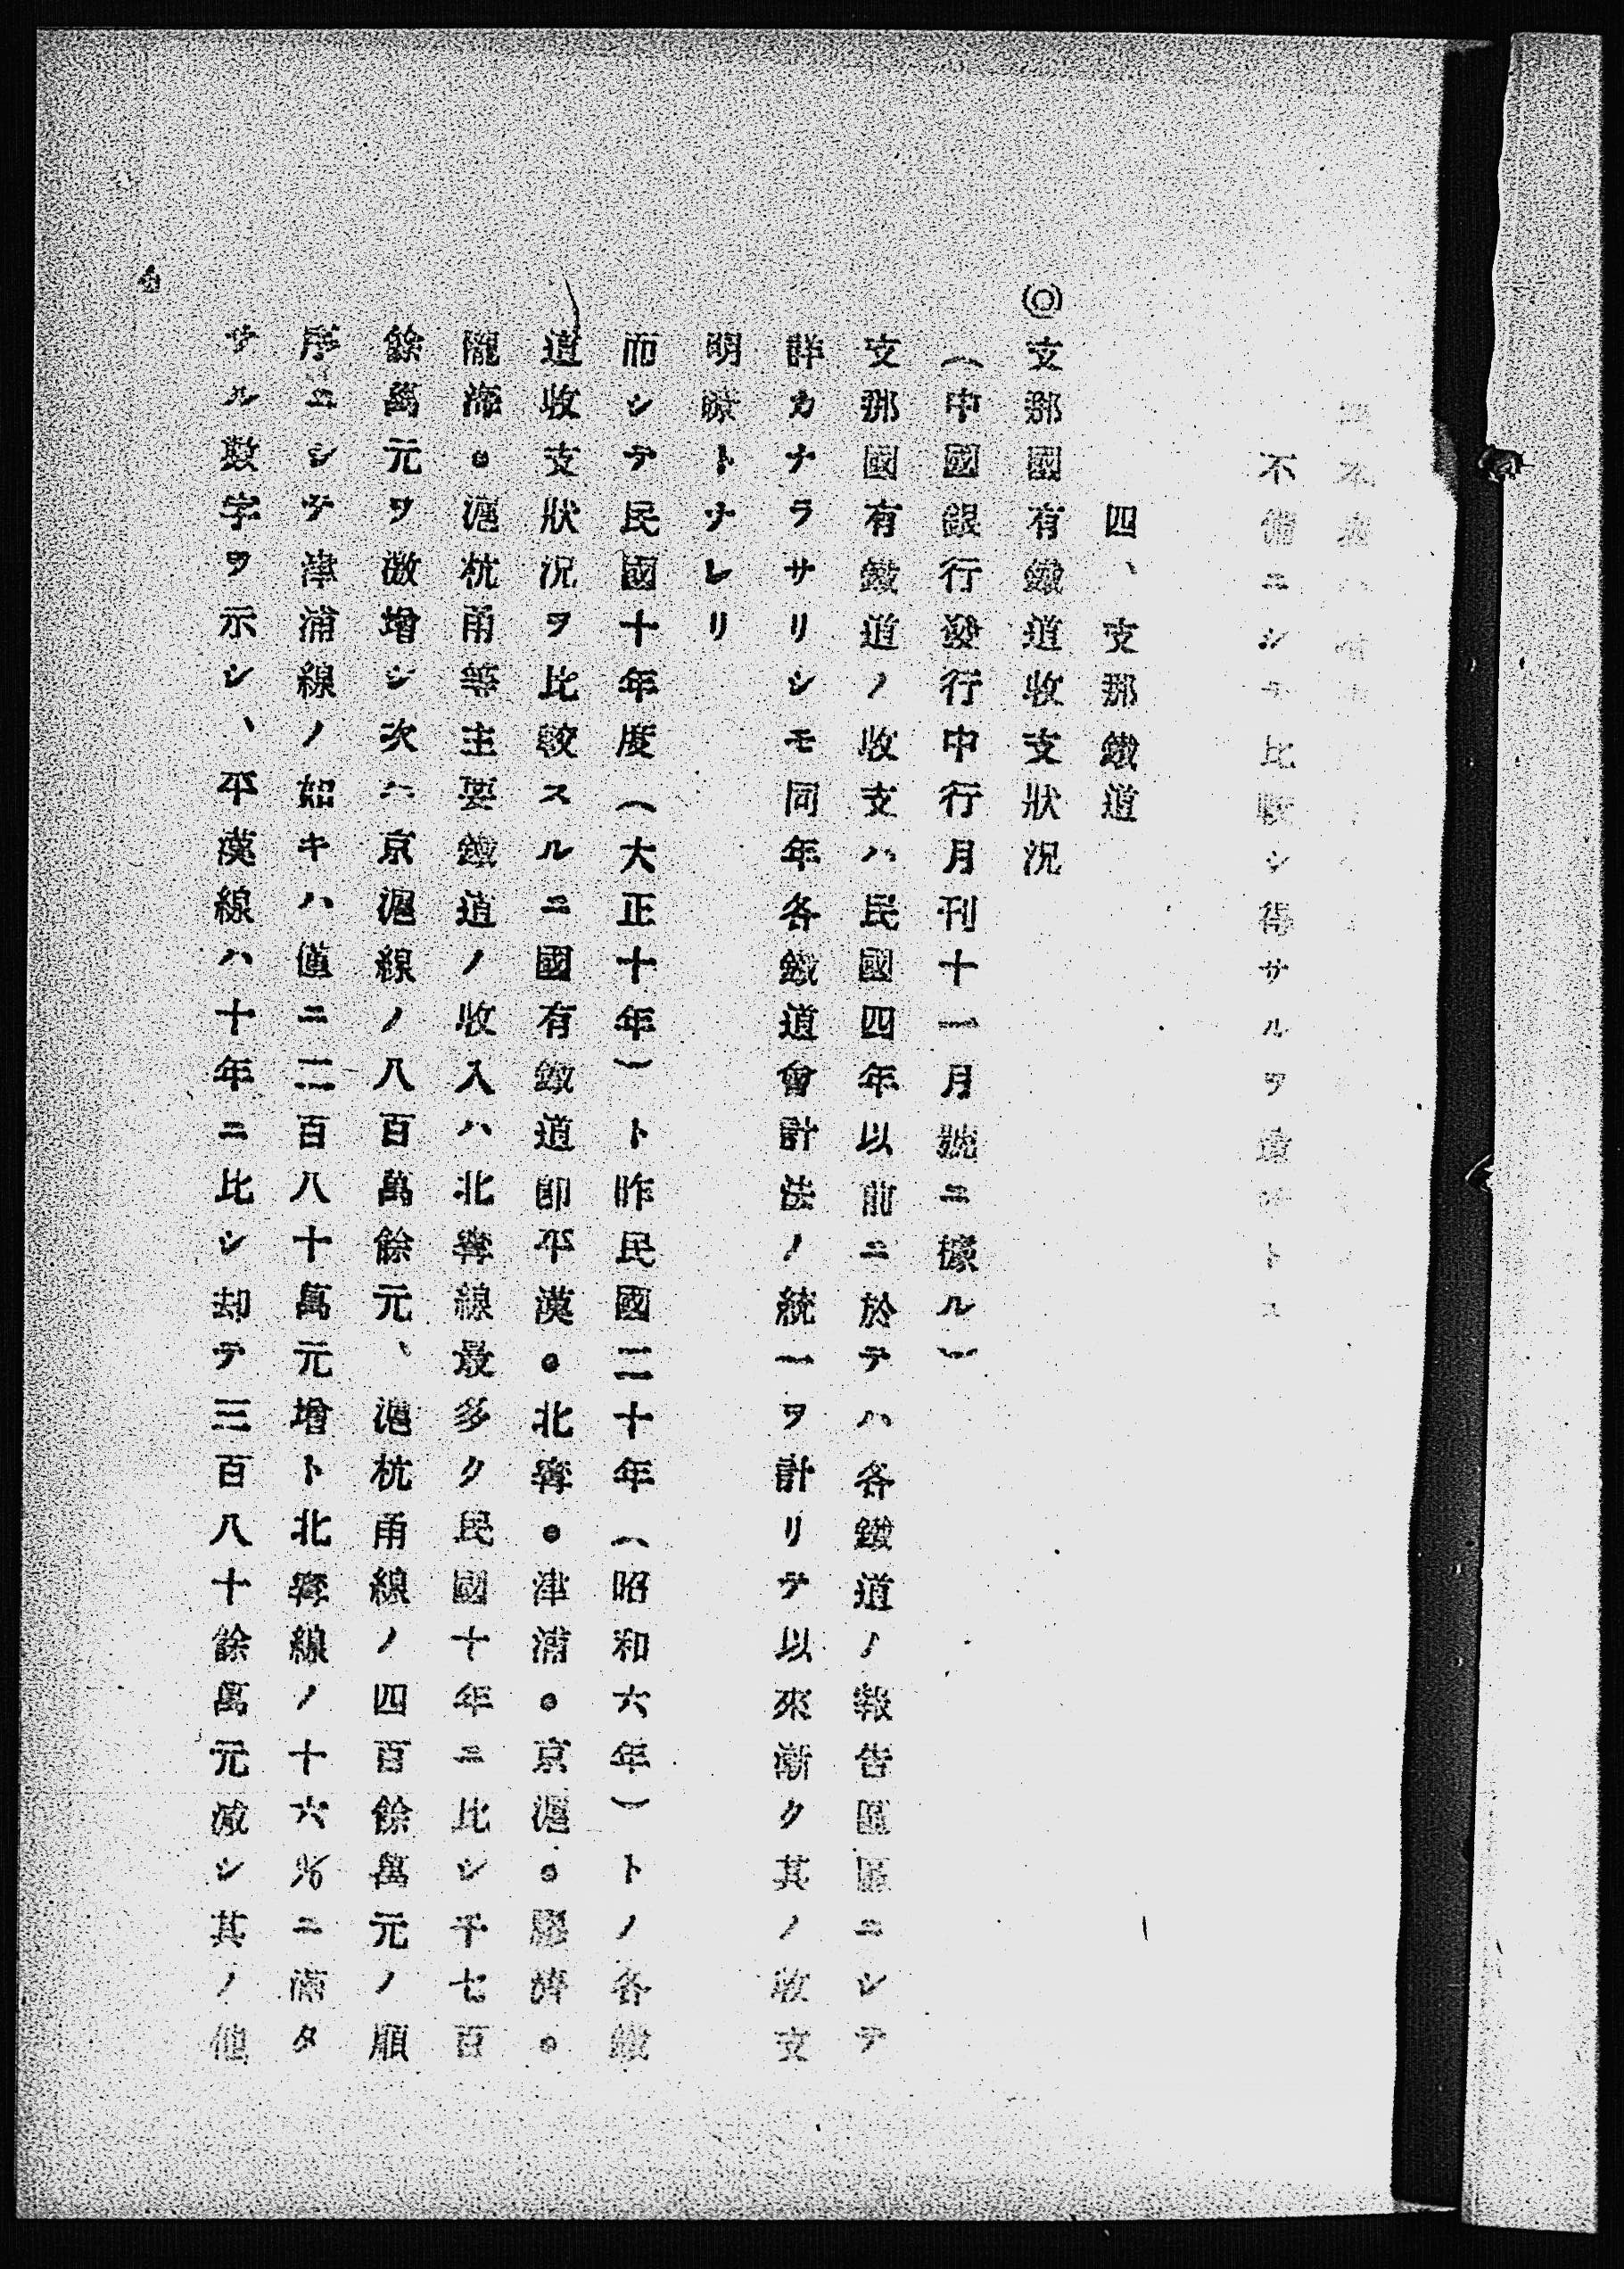 不備ニシテ比較シ得サルヲ遺憾トス
四、支那鐵道
◎支那國有鐵道收支狀況
(中國銀行發行中行月刊十一月號ニ據ル)
支那國有鐵道ノ收支ハ民國四年以前ニ於テハ各鐵道ノ報告區區ニシテ
詳カナラサリシモ同年各鐵道會計法ノ統一ヲ計リテ以來漸ク其ノ收支
明瞭トナレリ
而シテ民國十年度(大正十年)ト昨民國二十年(昭和六年)トノ各鐵
道收支狀況ヲ比較スルニ國有鐵道卽平漢。北寧。津浦。京滬。膠濟。
隴海。滬杭甬等主要鐵道ノ收入ハ北寧線最多ク民國十年ニ比シ千七百
餘萬元ヲ激增シ次ハ京滬線ノ八百萬餘元、滬杭甬線ノ四百餘萬元ノ順
序ニシテ津浦線ノ如キハ僅ニ二百八十萬元增ト北寧線ノ十六%ニ滿タ
サル數字ヲ示シ、平漢線ハ十年ニ比シ却テ三百八十餘萬元減シ其ノ他